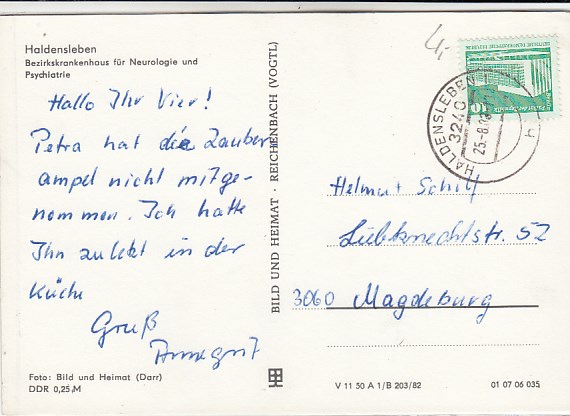 Haldensleben
Bezirkskrankenhaus für Neurologie und
Psychiatrie
Hallo Ihr Vier!
Petra hat die Zauber
ampel nicht mitge-
nommen. Ich hatte
Ihn zuletzt in der
Küche
Gruß
Annegrit
Foto: Bild und Heimat (Darr)
DDR 0,25 M
BILD UND HEIMAT · REICHENBACH (VOGTL)
HALDENSLEBEN 1
3240
10
h
Helmut Schilf
Liebknechtstr. 52
3060 Magdeburg
V 11 50 A 1/B 203/82
01 07 06 035